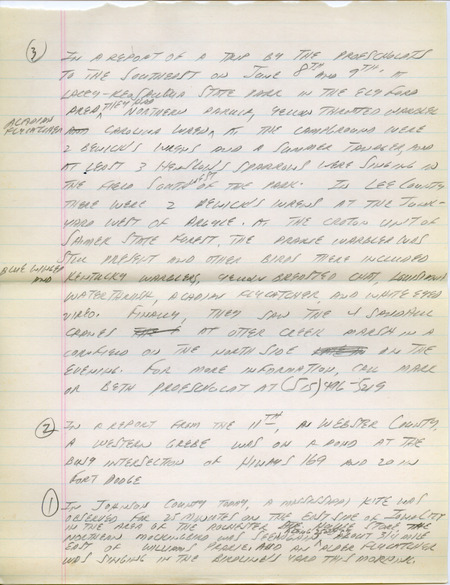 (3) IN A REPORT OF A TRIP BY THE PROESCHOLDTS
TO THE SOUTHEAST ON JUNE 8TH AND 9TH. AT
LACEY-KEOSAUQUA STATE PARK IN THE ELY FORD
AREA, THEY HAD NORTHERN PARULA, YELLOW THROATED WARBLER
ACADIAN FLYCATCHER AND CAROLINA WREN, AT THE CAMPGROUND WERE
2 BEWICK'S WRENS AND A SUMMER TANAGER, AND
AT LEAST 3 HENSLOW'S SPARROWS WERE SINGING IN
THE FIELD SOUTHWEST OF THE PARK. IN LEE COUNTY
THERE WERE 2 BEWICK'S WRENS AT THE JUNK-
YARD WEST OF ARGYLE. AT THE CROTON UNIT OF
SHIMEK STATE FOREST, THE PRAIRIE WARBLER WAS
STILL PRESENT AND OTHER BIRDS THERE INCLUDED
BLUE WINGED AND KENTUCKY WARBLERS, YELLOW BREASTED CHAT, LOUISIANA
WATERTHRUSH, ACADIAN FLYCATCHER, AND WHITE EYED
VIREO. FINALLY, THEY SAW THE 4 SANDHILL
CRANES AT OTTER CREEK MARSH IN A
CORNFIELD ON THE NORTH SIDE IN THE
EVENING. FOR MORE INFORMATION, CALL MARK
OR BETH PROESCHOLDT AT (515)
(2) IN A REPORT FROM THE 11TH, IN WEBSTER COUNTY,
A WESTERN GREBE WAS ON A POND AT THE
BUSY INTERSECTION OF HIWAYS 169 AND 20 IN
FORT DODGE
(1) IN JOHNSON COUNTY TODAY, A MISSISSIPPI KITE WAS
OBSERVED FOR 25 MINUTES ON THE EAST SIDE OF IOWA CITY
IN THE AREA OF THE STORE, THE
NORTHERN MOCKINGBIRD WAS ABOUT 3/4 MILE
EAST OF WILLIAMS PRAIRIE AND AN ALDER FLYCATCHER
WAS SINGING IN THE BIRDLINE'S YARD THIS MORNING.